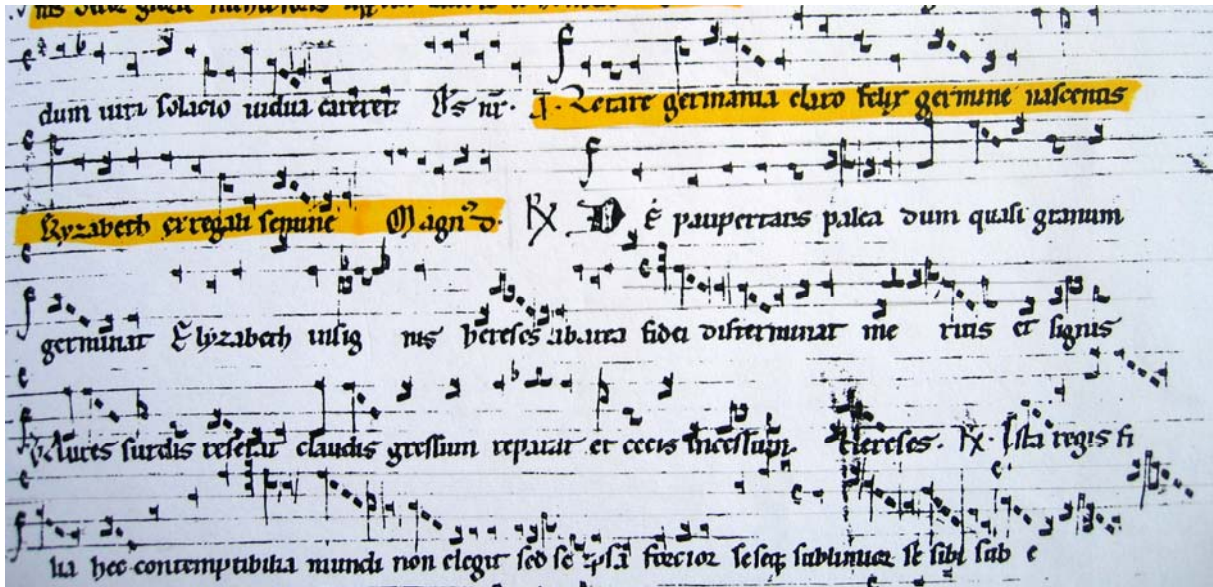 nis
dum uiri solacio uidua careret Ps nr. A. Letare germania claro felix germine nascentis
Elyzabeth ex regali semine Magn d. RX DE paupertatis palea dum quasi granum
germinat Elyzabeth insig nis hereses abacta fidei disterminat me ritis et signis
Aures surdis reserat claudis gressum reparat et cecis incessum. Hereses. RX. Ista regis fi
lia hec contemptibilia mundi non elegit sed se forcior seseq sublimior se sibi sub e